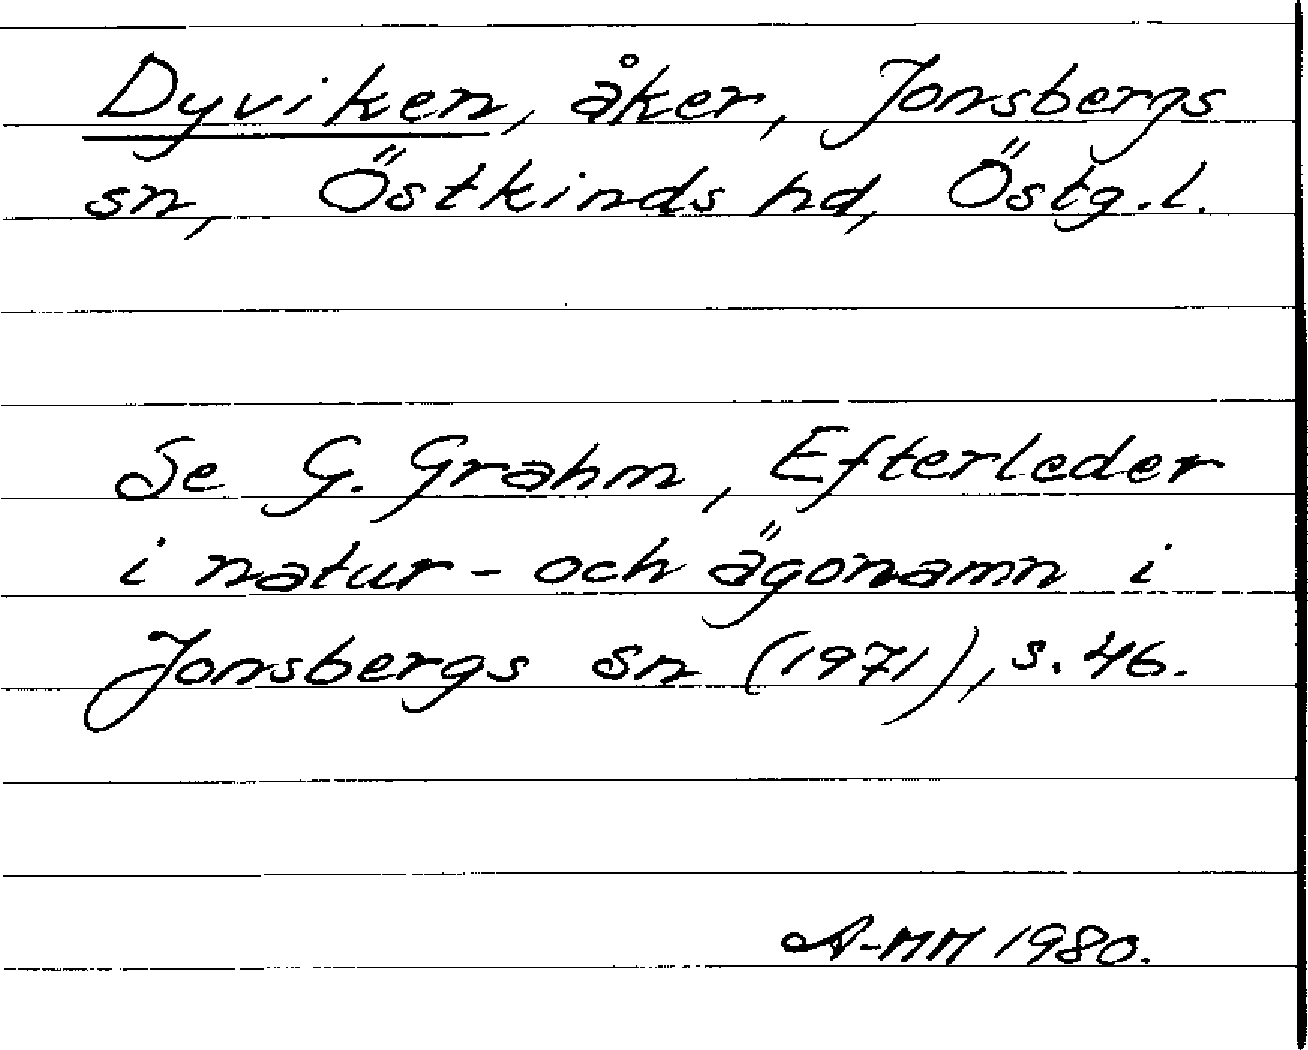 Dyviken, åker, Jonsbergs
sn, Östkinds hd, Östg.l.
Se G. Grahm, Efterleder
i natur- och ägonamn i
Jonsbergs sn (1971), s. 46.
A-MM 1980.